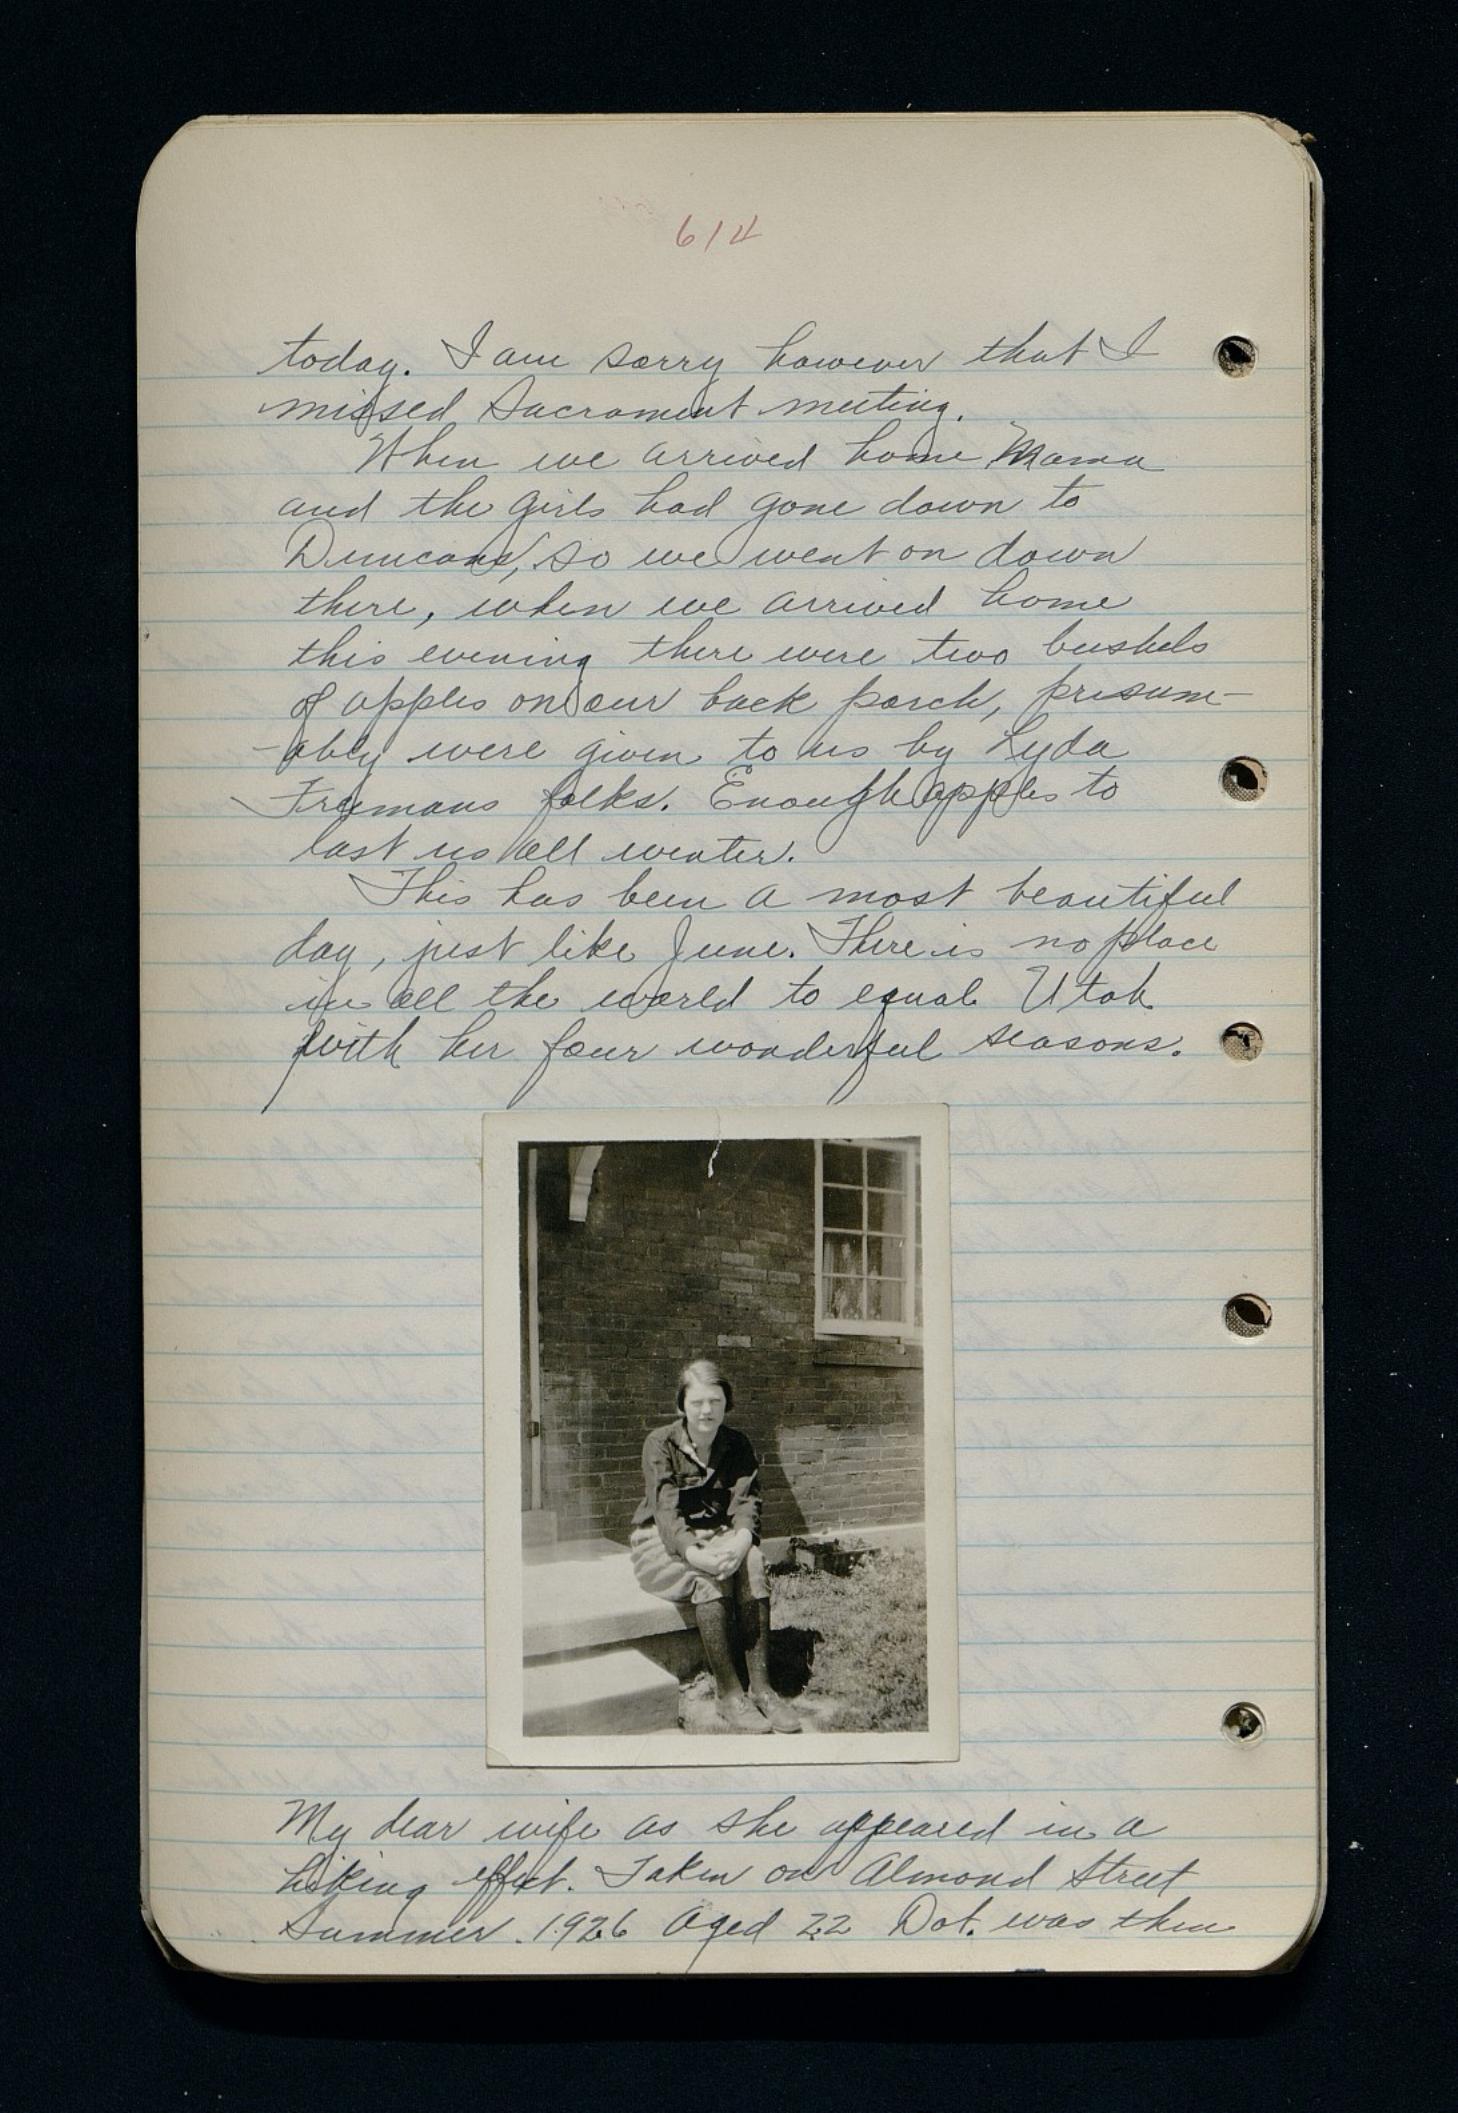 614
today. I am sorry however that I
missed Sacrament meeting.
When we arrived home Mama
and the girls had gone down to
Duncans, so we went on down
there, when we arrived home
this evening there were two bushels
of apples on our back porch, presum-
-ably were given to us by Lyda
Freemans folks. Enough apples to
last us all winter.
This has been a most beautiful
day, just like June. There is no place
in all the world to equal Utah
with her four wonderful seasons.
My dear wife as she appeared in a
hiking effect. Taken on Almond Street
Summer 1926 Aged 22 Dot. was then